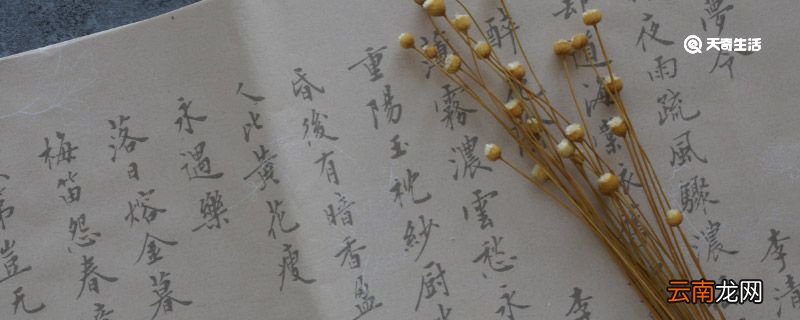 夢令 李清
夜雨疏風驟濃
却道海棠依
醉花陰 李
薄霧濃雲愁永
重陽玉枕紗厨
昏後有暗香盈
人比黃花瘦
永遇樂
落日熔金暮
梅笛怨春
豈无
天奇生活
云南龙网